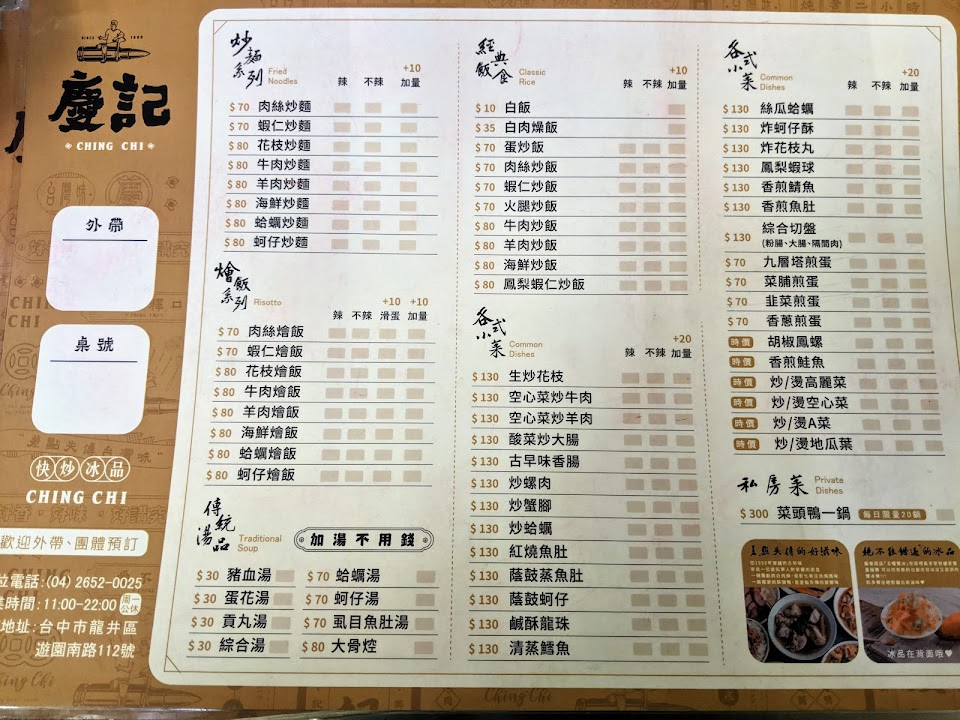 SINCE 1980
慶記
CHING CHI
外帶
桌號
快炒冰品
CHING CHI
歡迎外帶、團體預訂
位電話:(04) 2652-0025
業時間:11:00-22:00 週一公休
地址:台中市龍井區
遊園南路112號
炒麵系列
Fried Noodles
辣 不辣 +10 加量
$70 肉絲炒麵
$70 蝦仁炒麵
$80 花枝炒麵
$80 牛肉炒麵
$80 羊肉炒麵
$80 海鮮炒麵
$80 蛤蠣炒麵
$80 蚵仔炒麵
燴飯系列
Risotto
辣 不辣 +10 滑蛋 +10 加量
$70 肉絲燴飯
$70 蝦仁燴飯
$80 花枝燴飯
$80 牛肉燴飯
$80 羊肉燴飯
$80 海鮮燴飯
$80 蛤蠣燴飯
$80 蚵仔燴飯
傳統湯品
Traditional Soup
加湯不用錢
$30 豬血湯
$30 蛋花湯
$30 貢丸湯
$30 綜合湯
$70 蛤蠣湯
$70 蚵仔湯
$70 虱目魚肚湯
$80 大骨焢
經典飯食
Classic Rice
辣 不辣 +10 加量
$10 白飯
$35 白肉燥飯
$70 蛋炒飯
$70 肉絲炒飯
$70 蝦仁炒飯
$70 火腿炒飯
$80 牛肉炒飯
$80 羊肉炒飯
$80 海鮮炒飯
$80 鳳梨蝦仁炒飯
各式小菜
Common Dishes
辣 不辣 +20 加量
$130 生炒花枝
$130 空心菜炒牛肉
$130 空心菜炒羊肉
$130 酸菜炒大腸
$130 古早味香腸
$130 炒螺肉
$130 炒蟹腳
$130 炒蛤蠣
$130 紅燒魚肚
$130 蔭鼓蒸魚肚
$130 蔭鼓蚵仔
$130 鹹酥龍珠
$130 清蒸鱈魚
各式小菜
Common Dishes
辣 不辣 +20 加量
$130 絲瓜蛤蠣
$130 炸蚵仔酥
$130 炸花枝丸
$130 鳳梨蝦球
$130 香煎鯖魚
$130 香煎魚肚
$130 綜合切盤
(粉腸、大腸、隔間肉)
$70 九層塔煎蛋
$70 菜脯煎蛋
$70 韭菜煎蛋
$70 香蔥煎蛋
時價 胡椒鳳螺
時價 香煎鮭魚
時價 炒/燙高麗菜
時價 炒/燙空心菜
時價 炒/燙A菜
時價 炒/燙地瓜葉
私房菜
Private Dishes
$300 菜頭鴨一鍋 每日限量20鍋
差點失傳的好滋味
絕不能錯過的冰品
冰品在背面哦♥